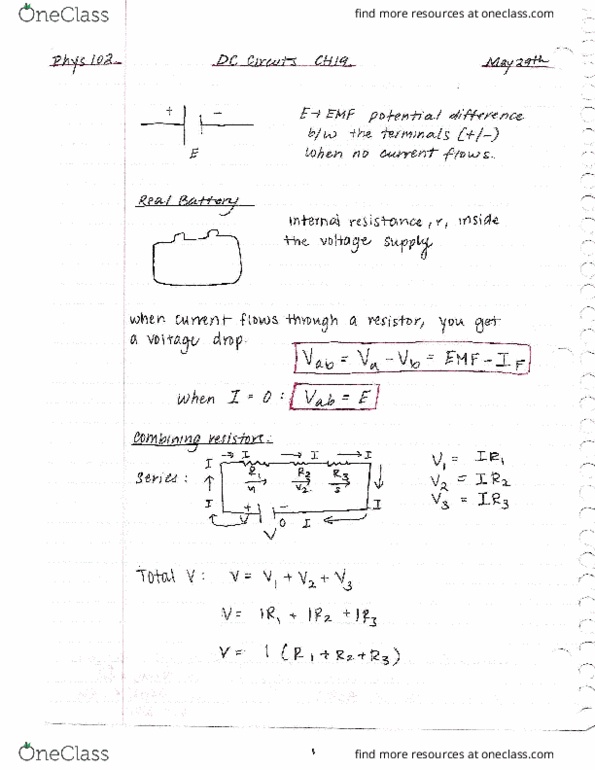 OneClass find more resources at oneclass.com
Phys 102 DC Circuits CH19 May 29th
+ -
E
E→ EMF potential difference
b/w the terminals (+/-)
when no current flows.
Real Battery
internal resistance, r, inside
the voltage supply
when current flows through a resistor, you get
a voltage drop.
Vab = Va - Vb = EMF - Ir
when I = 0 : Vab = E
Combining resistors:
Series :
I → I → I → I
R1 R2 R3
V1 V2 3
I I
+ -
V O I
V
V1 = IR1
V2 = IR2
V3 = IR3
Total V : V = V1 + V2 + V3
V = IR1 + IR2 + IR3
V = I (R1 + R2 + R3)
OneClass find more resources at oneclass.com